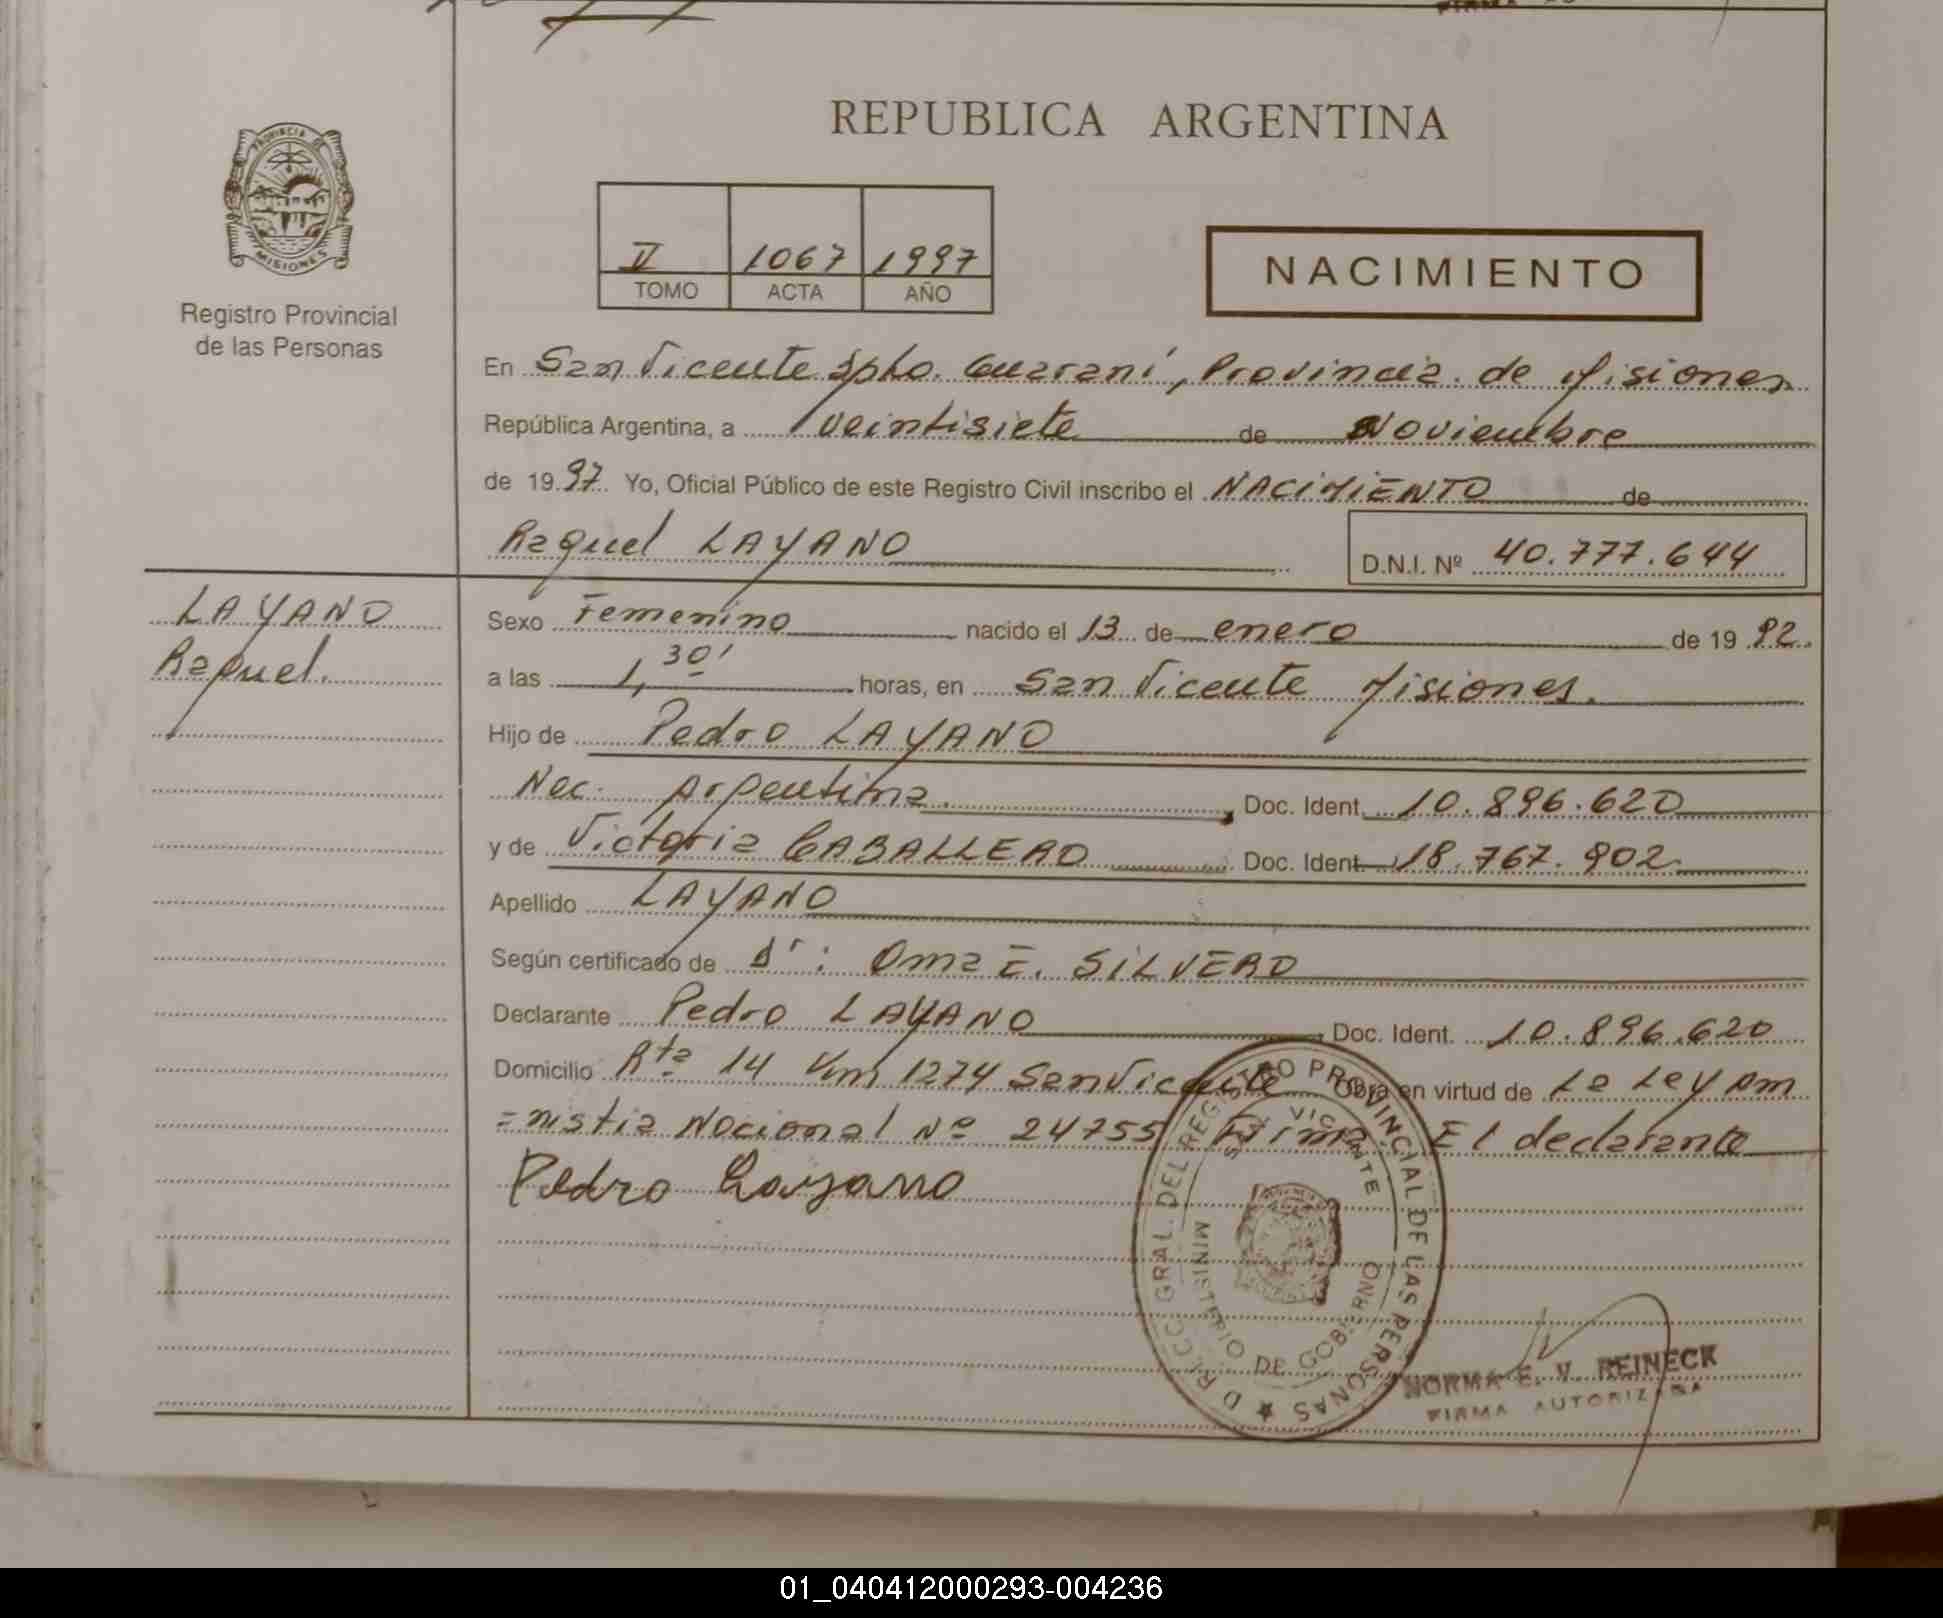 REPUBLICA ARGENTINA
PROVINCIA DE
MISIONES
Registro Provincial
de las Personas
II 1067 1997
TOMO ACTA AÑO
NACIMIENTO
En San Vicente Dpto. Guaraní, Provincia de Misiones
República Argentina, a veintisiete de Noviembre
de 1997 Yo, Oficial Público de este Registro Civil inscribo el NACIMIENTO de
Raquel LAYANO D.N.I. Nº 40.777.644
LAYANO
Raquel.
Sexo Femenino nacido el 13 de enero de 1992.
a las 1,30' horas, en San Vicente Misiones.
Hijo de Pedro LAYANO
Nac. Argentina Doc. Ident. 10.896.620
y de Victoria CABALLERO Doc. Ident. 18.767.902
Apellido LAYANO
Según certificado de Dr: Oma E. SILVERO
Declarante Pedro LAYANO Doc. Ident. 10.896.620
Domicilio Rta 14 Km 1274 San Vicente Obra en virtud de La Ley Am
=nistia Nacional Nº 24755 Firma: El declarante
Pedro Layano
D R.CC GRAL. DEL REGISTRO PROVINCIAL DE LAS PERSONAS
SAN VICENTE
MINISTERIO DE GOBIERNO
NORMA E. V. REINECK
FIRMA AUTORIZADA
01_040412000293-004236